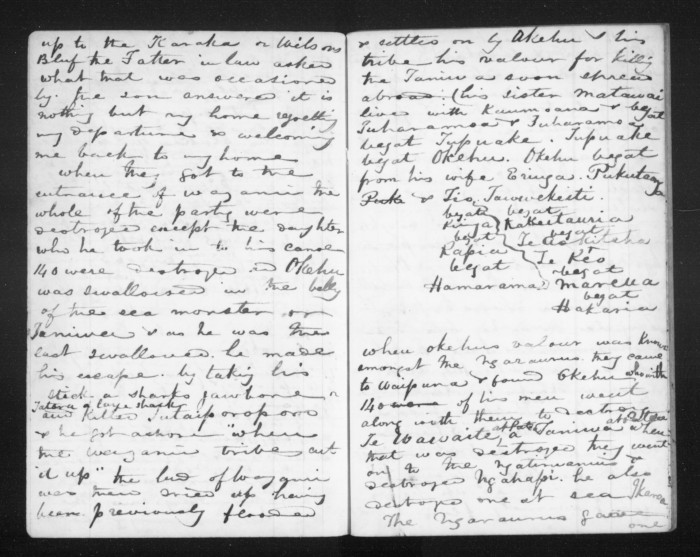 up to the Karaka or Wilsons
Bluf the Father in law asked
what that was occationed
by. the son answered it is
nothing but my home regretting
my departure & welcoming
me back to my home
when they got to the
entrance of Waganui the
whole of the party were
destroyed except the daughter
who he took in to his canoe
140 were destroyed and Okehu
was swallowed in the belly
of the sea monster or
Taniwa & as he was the
last swallowed. he made
his escape. by taking his
stick. a sharks jawbone
Tatera a large shark
and killed
& he got ashore "when
the Waganui tribe cut
it up" the land of Waganui
was then dried up having
been previously flooded
& settles on by Okehu & his
tribe his valour for killing
the Taniwa soon spread
abroad. (his sister Matawai
lives with & begat
Tuharamoa & Tuharamoa
begat Tupuake. Tupuake
begat Okehu. Okehu begat
from his wife Eringa.
& Tio.
begat begat
Kakeitauria
begat begat
Rapia
Te Reo
begat begat
Hamarama Marella
begat
Hakaria
when Okehus valour was known
amongst the Ngaraurus. they came
to Waipuna & found Okehu who with
140 were of his men went
along with them to destroy
Te a Taniwa when
that was destroyed they went
on to the &
destroyed Ngahapi. he also
destroyed one at sea
The Ngaraurus gave
one